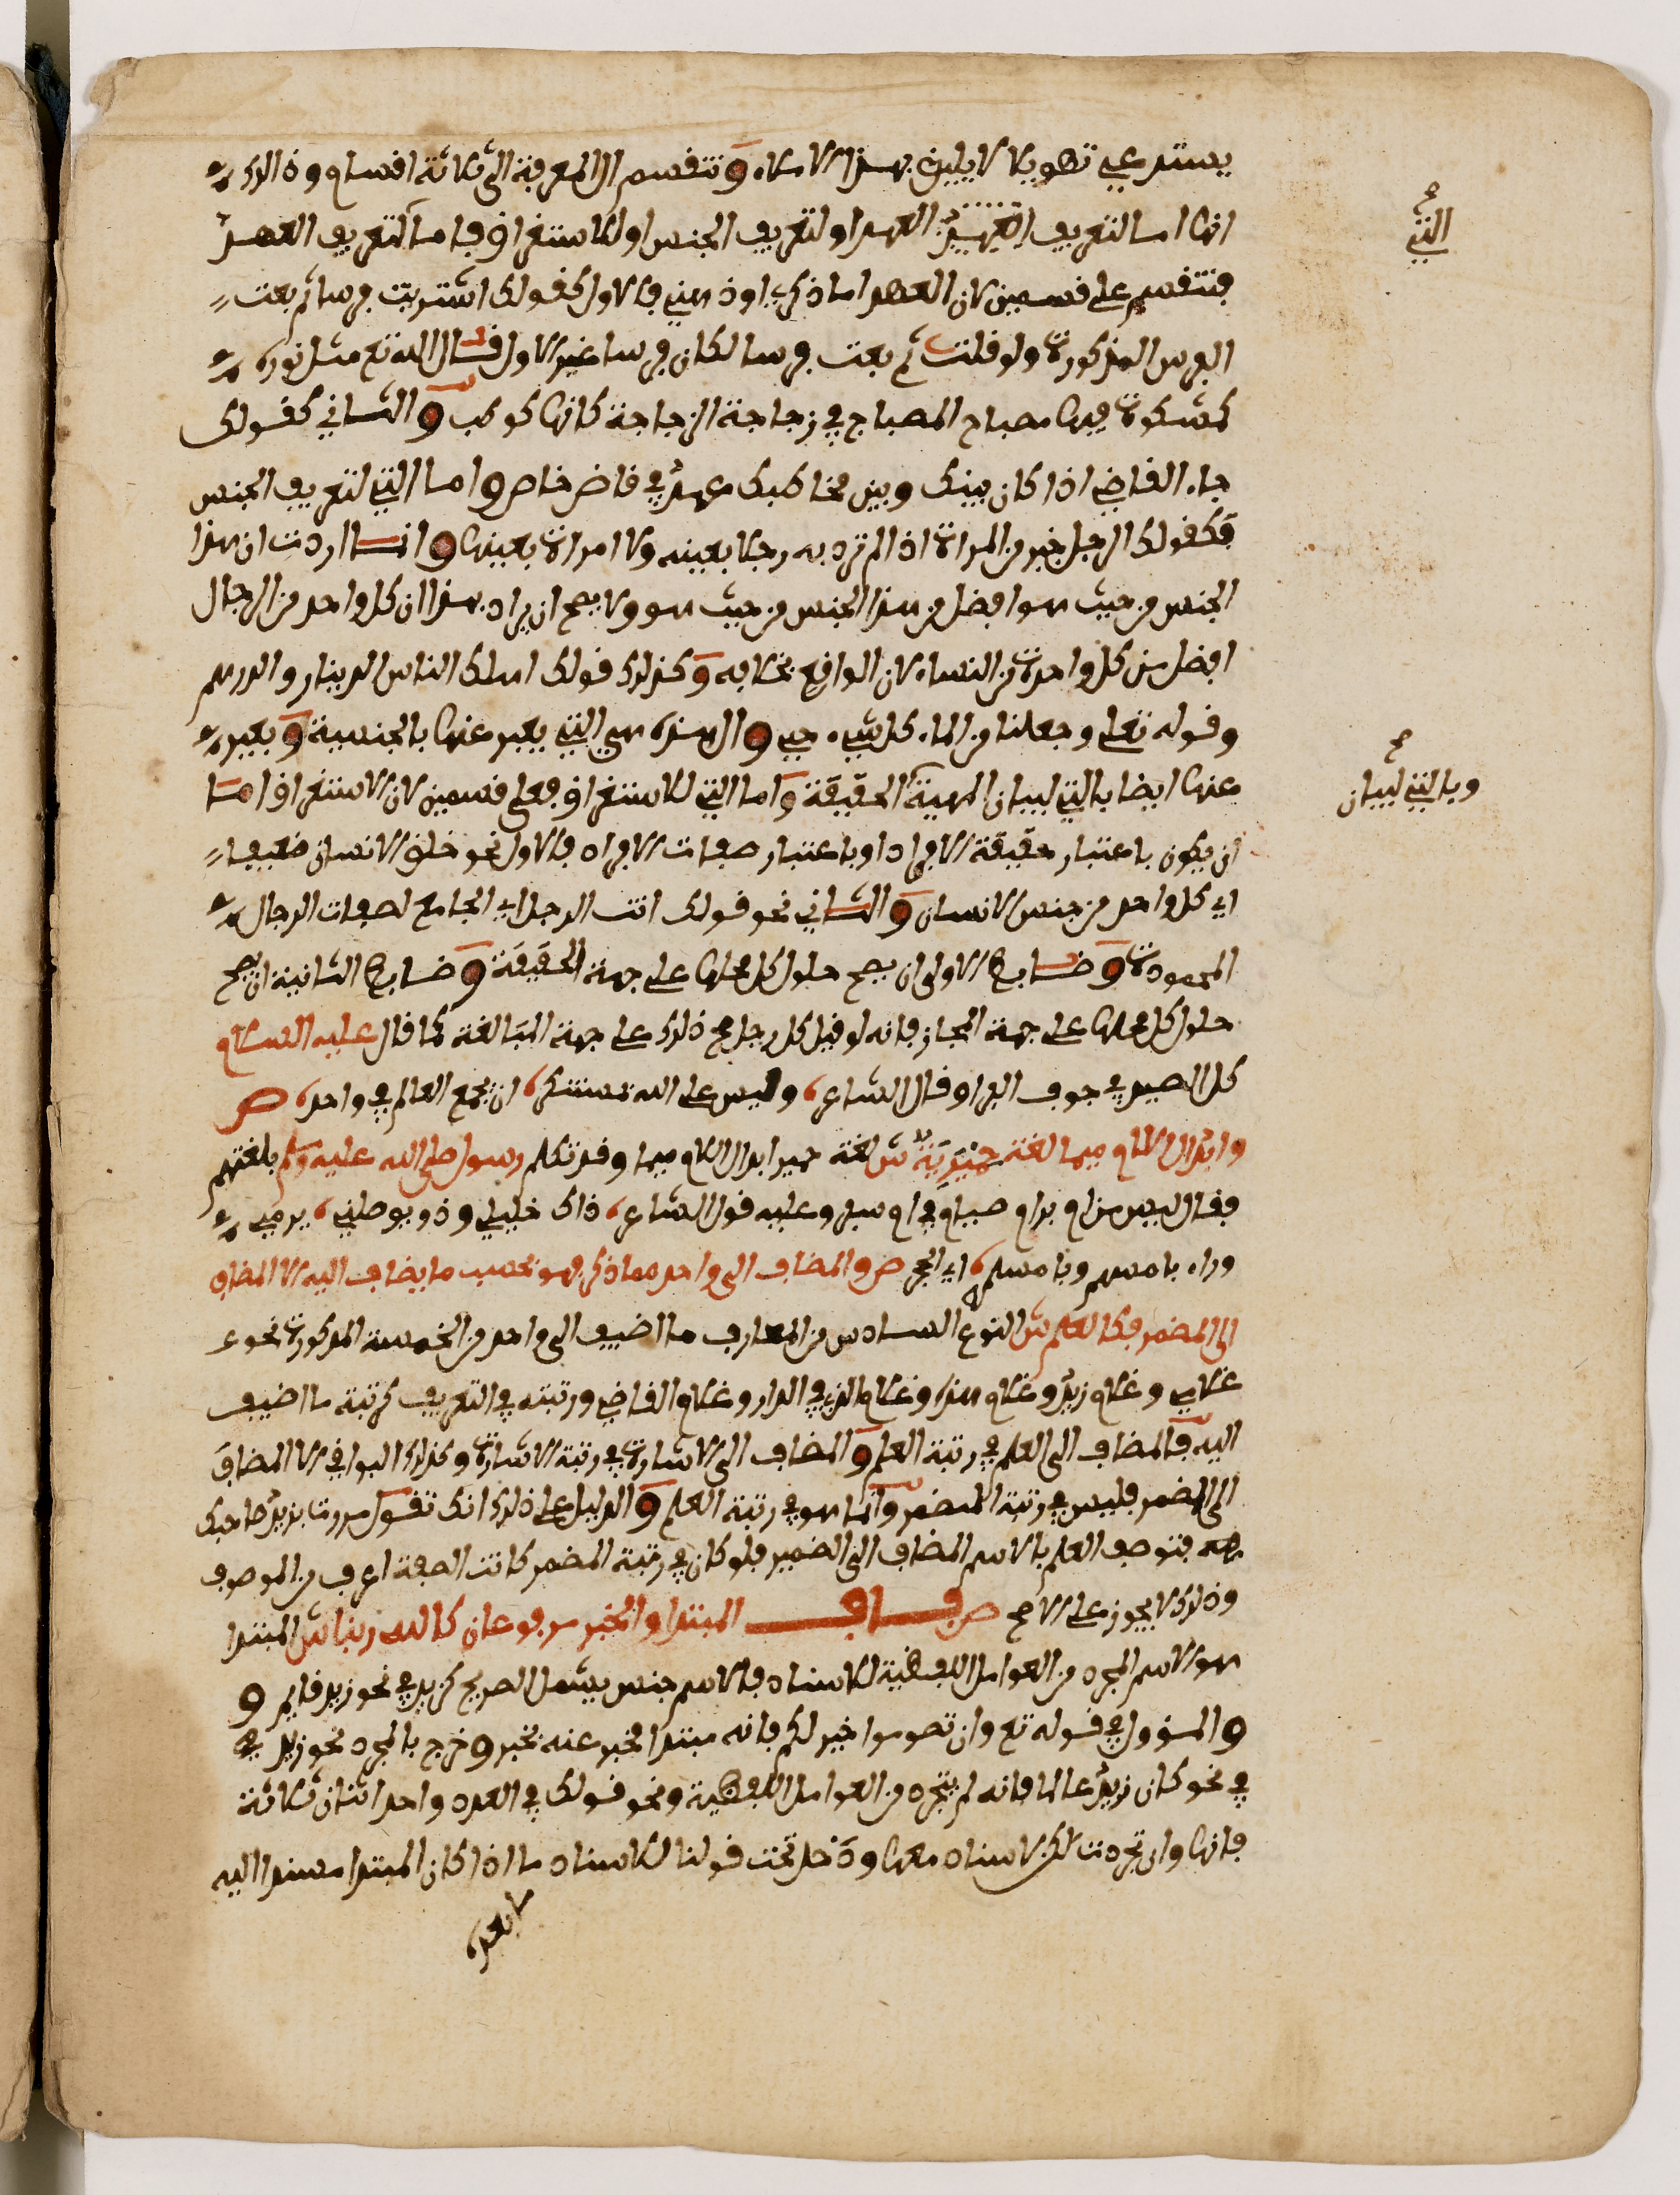 يستدعي تطويلا لا يليق بهذا الاملاء وتنقسم ال المعرفة الى ثلاثة اقسام وذلك
انها اما لتعريف العهد او لتعريف الجنس او للاستغراق فاما التي لتعريف العهد
فتنقسم على قسمين لان العهد اما ذكري او ذهني فالاول كقولك اشتريت فرسا ثم بعت
الفرس المذكورة ولو قلت ثم بعت فرسا لكان فرسا غير الاول قال الله تع مثل نوره
كمشكوة فيها مصباح المصباح في زجاجة الزجاجة كانها كوكب والثاني كقولك
جاء القاضي اذا كان بينك وبين مخاطبك عهد في قاض خاص واما التي لتعريف الجنس
فكقولك الرجل خير من المراة اذا لم ترد به رجلا بعينه ولا امراة بعينها وانما اردت ان هذا
الجنس من حيث هو افضل من هذا الجنس من حيث هو ولا يصح ان يراد بهذا ان كل واحد من الرجال
افضل من كل واحدة من النساء لان الواقع بخلافه وكذلك قولك اهلك الناس الدينار والدرهم
وقوله تعلى وجعلنا من الماء كل شيء حي وال هذه هي التي يعبر عنها بالجنسية ويعبر
عنها ايضا بالتي لبيان الماهية وبالتي لبيان الحقيقة واما التي للاستغراق فعلى قسمين لان الاستغراق اما
ان يكون باعتبار حقيقة الافراد او باعتبار صفات الافراد فالاول نحو خلق الانسان ضعيفا
اي كل واحد من جنس الانسان والثاني نحو قولك انت الرجل اي الجامع لصفات الرجال
المحمودة وضابط الاولى ان يصح حلول كل محلها على جهة الحقيقة وضابط الثانية ان يصح
حلول كل محلها على جهة المجاز فانه لو قيل كل رجل صح ذلك على جهة المبالغة كما قال عليه السلام
كل الصيد في جوف الفرا وقال الشاعر، وليس على الله بمستنكر، ان يجمع العالم في واحد، ص
وابدال اللام ميما لغة حميرية ش لغة حمير ابدال اللام ميما وقد تكلم رسول صلى الله عليه وسلم بلغتهم
فقال ليس من ام برام صيام في ام سفر وعليه قول الشاعر، ذاك خليلي وذو يوصلني، يرمي
وراء بامسهم وبامسلمه، اي الحجر ص والمضاف الى واحد مما ذكر فهو بحسب ما يضاف اليه الا المضاف
الى المضمر فكالعلم ش النوع السادس من المعارف ما اضيف الى واحد من الخمسة المذكورة نحو
غلامي وغلام زيد وغلام هذا وغلام الذي في الدار وغلام القاضي ورتبته في التعريف كرتبة ما اضيف
اليه فالمضاف الى العلم في رتبة العلم والمضاف الى الاشارة في رتبة الاشارة وكذلك البواقي الا المضاف
الى المضمر فليس في رتبة المضمر وانما هو في رتبة العلم والدليل على ذلك انك تقول مررت بزيد صاحبك
فتوصف العلم بالاسم المضاف الى الضمير فلو كان في رتبة المضمر كانت الصفة اعرف من الموصوف
وذلك لا يجوز على الاصح ص باب المبتدا والخبر مرفوعان كالله ربنا ش المبتدا
هو الاسم المجرد من العوامل اللفظية للاسناد فالاسم جنس يشمل الصريح كزيد في نحو زيد قايم و
والمؤول في قوله تع وان تصوموا خير لكم فانه مبتدا مخبر عنه بخير وخرج بالمجرد نحو زيد في
في نحو كان زيد عالما فانه لم يتجرد من العوامل اللفظية ونحو قولك في العدد واحد اثنان ثلاثة
فانها وان تجردت لكن لا اسناد معها ودخل تحت قولنا للاسناد ما اذا كان المبتدا مسندا اليه
ما بعده
التي
وبالتي لبيان